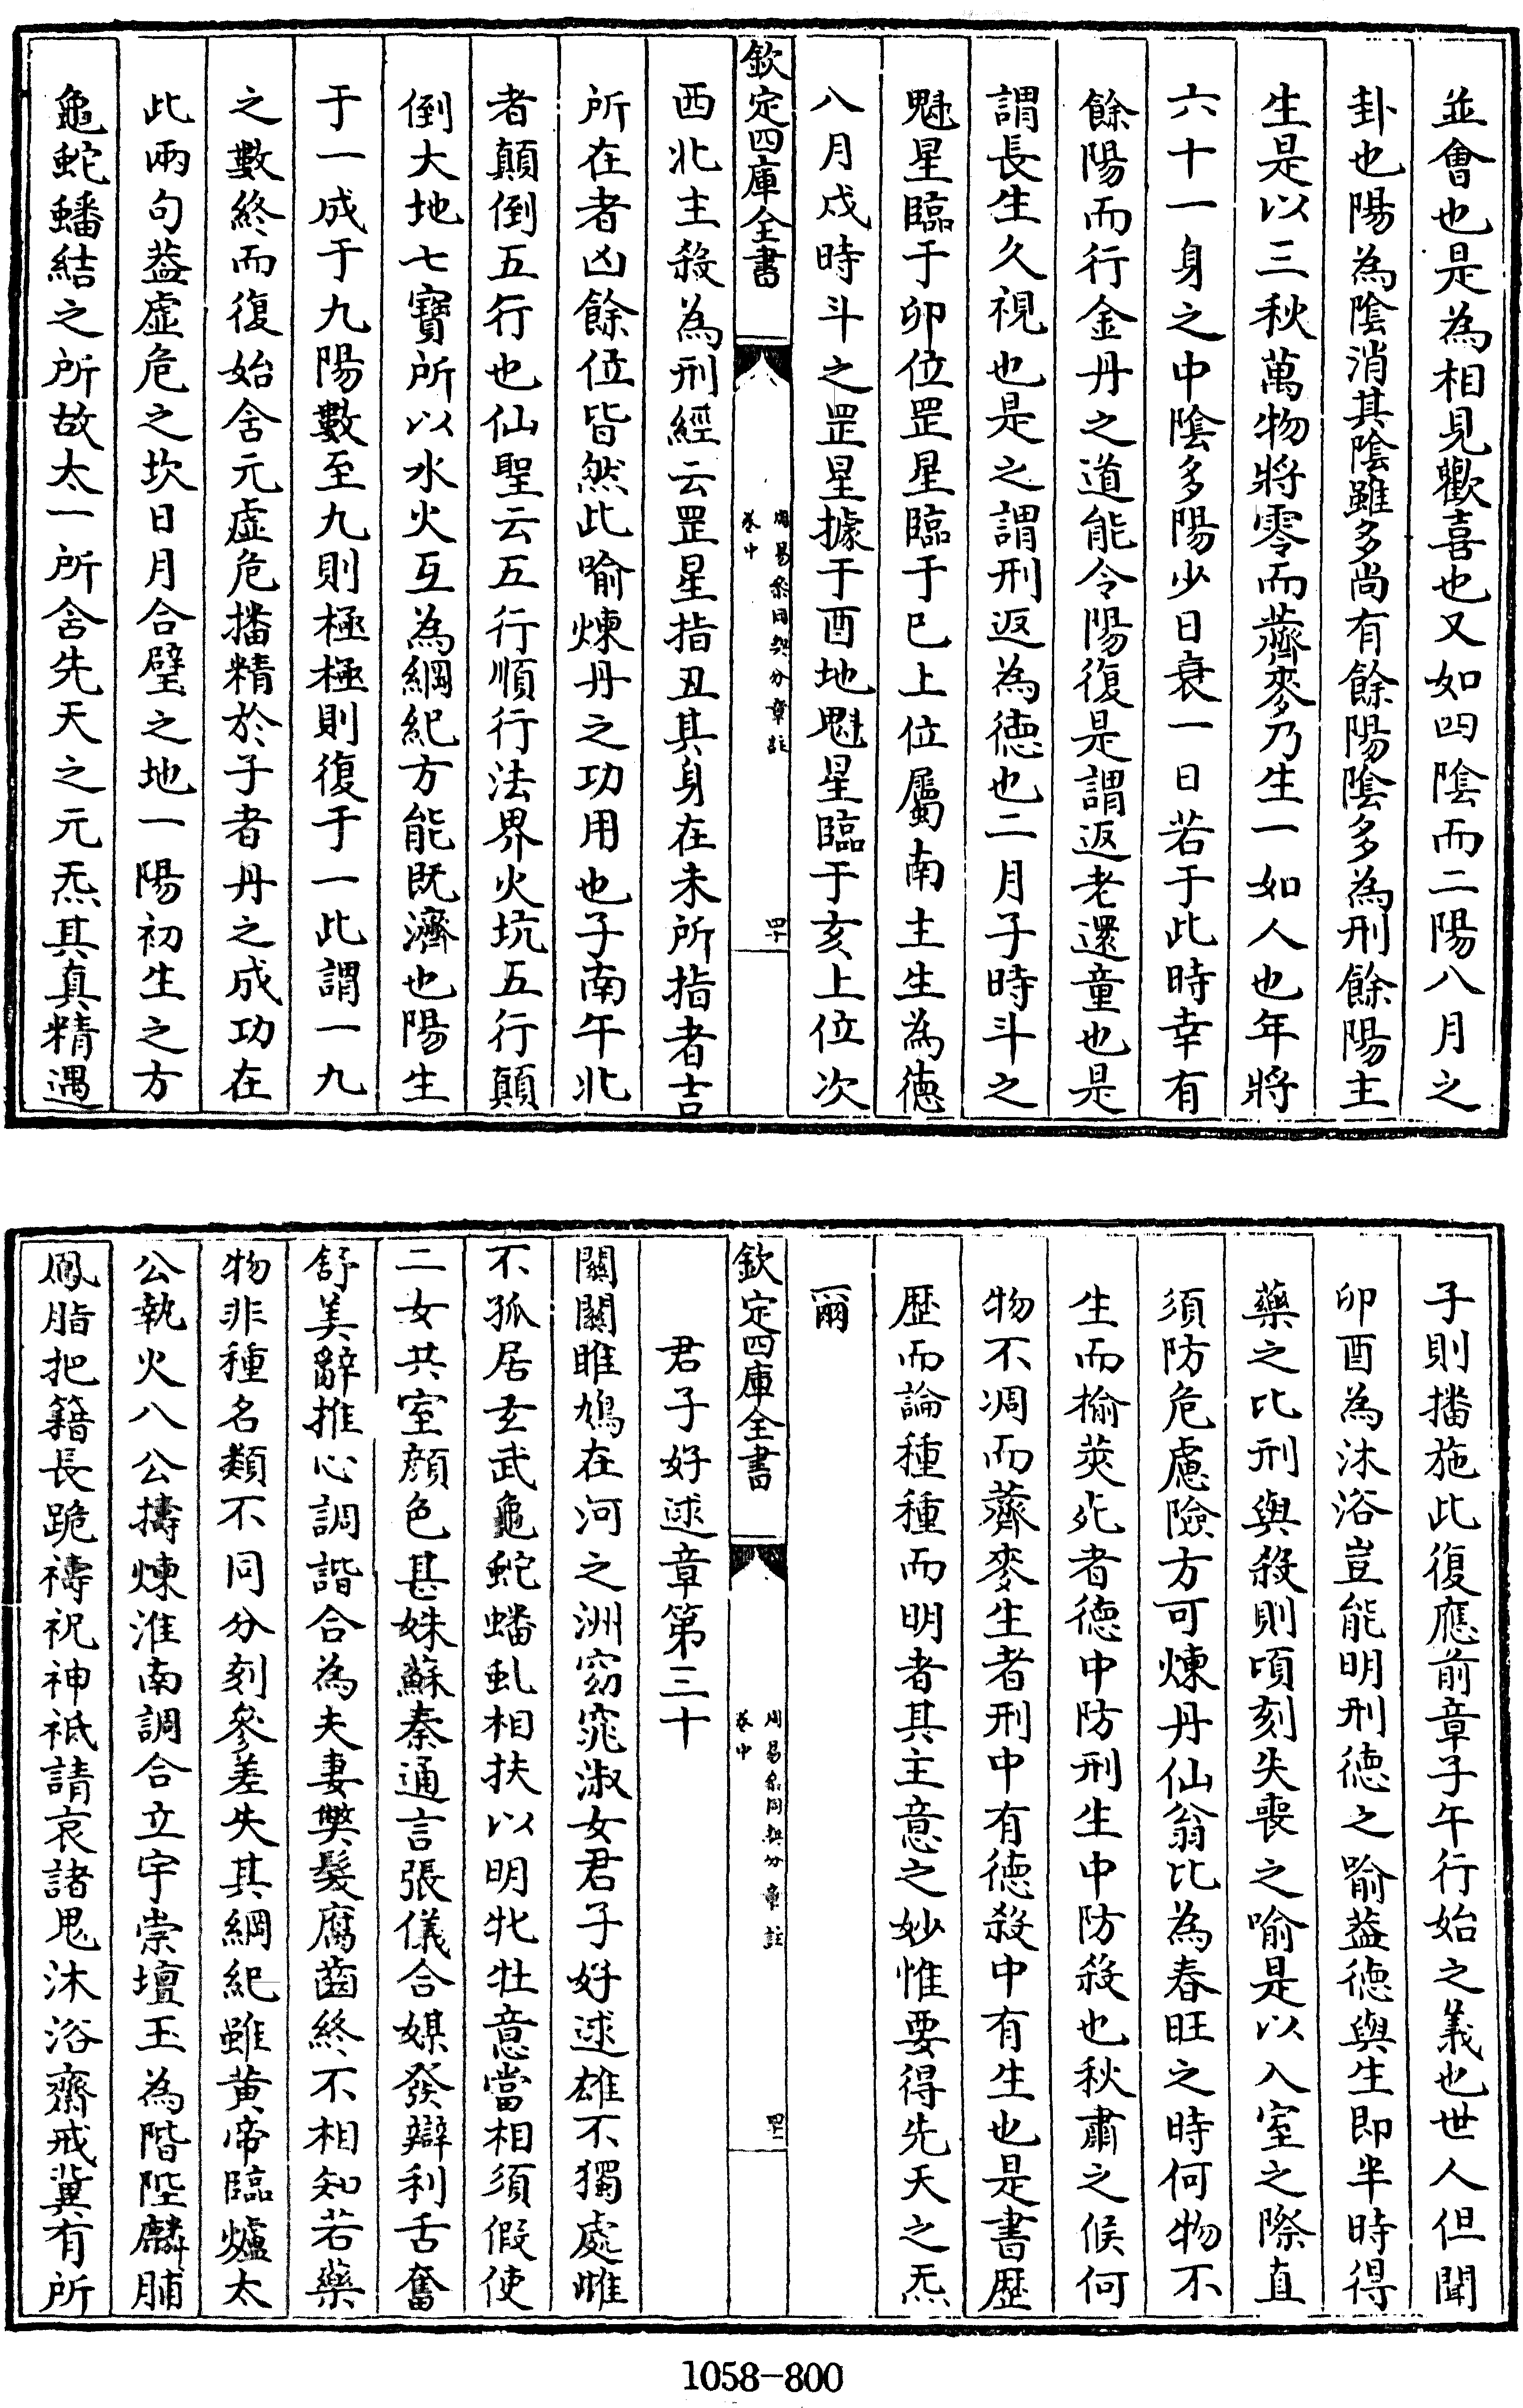 並會也是為相見歡喜也又如四陰而二陽八月之
卦也陽為陰消其陰雖多尚有餘陽陰多為刑餘陽主
生是以三秋萬物將零而薺麥乃生一如人也年將
六十一身之中陰多陽少日衰一日若于此時幸有
餘陽而行金丹之道能令陽復是謂返老還童也是
謂長生久視也是之謂刑返為徳也二月子時斗之
魁星臨于卯位罡星臨于巳上位屬南主生為徳
八月戍時斗之罡星據于酉地魁星臨于亥上位次
欽定四庫全書
周易參同契分章註
卷中
四十
西北主殺為刑經云罡星指丑其身在未所指者吉
所在者凶餘位皆然此喻煉丹之功用也子南午北
者顛倒五行也仙聖云五行順行法界火坑五行顛
倒大地七寶所以水火互為綱紀方能既濟也陽生
于一成于九陽數至九則極極則復于一此謂一九
之數終而復始含元虛危播精於子者丹之成功在
此兩句葢虛危之坎日月合璧之地一陽初生之方
龜蛇蟠結之所故太一所含先天之元炁其真精遇
子則播施此復應前章子午行始之義也世人但聞
卯酉為沐浴豈能明刑徳之喻葢徳與生即半時得
藥之比刑與殺則頃刻失喪之喻是以入室之際直
須防危慮險方可煉丹仙翁比為春旺之時何物不
生而榆莢死者徳中防刑生中防殺也秋肅之候何
物不凋而薺麥生者刑中有徳殺中有生也是書歴
歴而論種種而明者其主意之妙惟要得先天之炁
爾
欽定四庫全書
周易參同契分章註
卷中
四一
君子好逑章第三十
關關雎鳩在河之洲窈窕淑女君子好逑雄不獨處雌
不孤居玄武龜蛇蟠虬相扶以明牝牡意當相須假使
二女共室顔色甚姝蘇秦通言張儀合媒發辯利舌奮
舒美辭推心調諧合為夫妻獘髮腐齒終不相知若藥
物非種名類不同分刻參差失其綱紀雖黄帝臨爐太
公執火八公擣煉淮南調合立宇崇壇玉為階陛麟脯
鳳脂把籍長跪禱祝神祗請哀諸鬼沐浴齋戒冀有所
1058-800